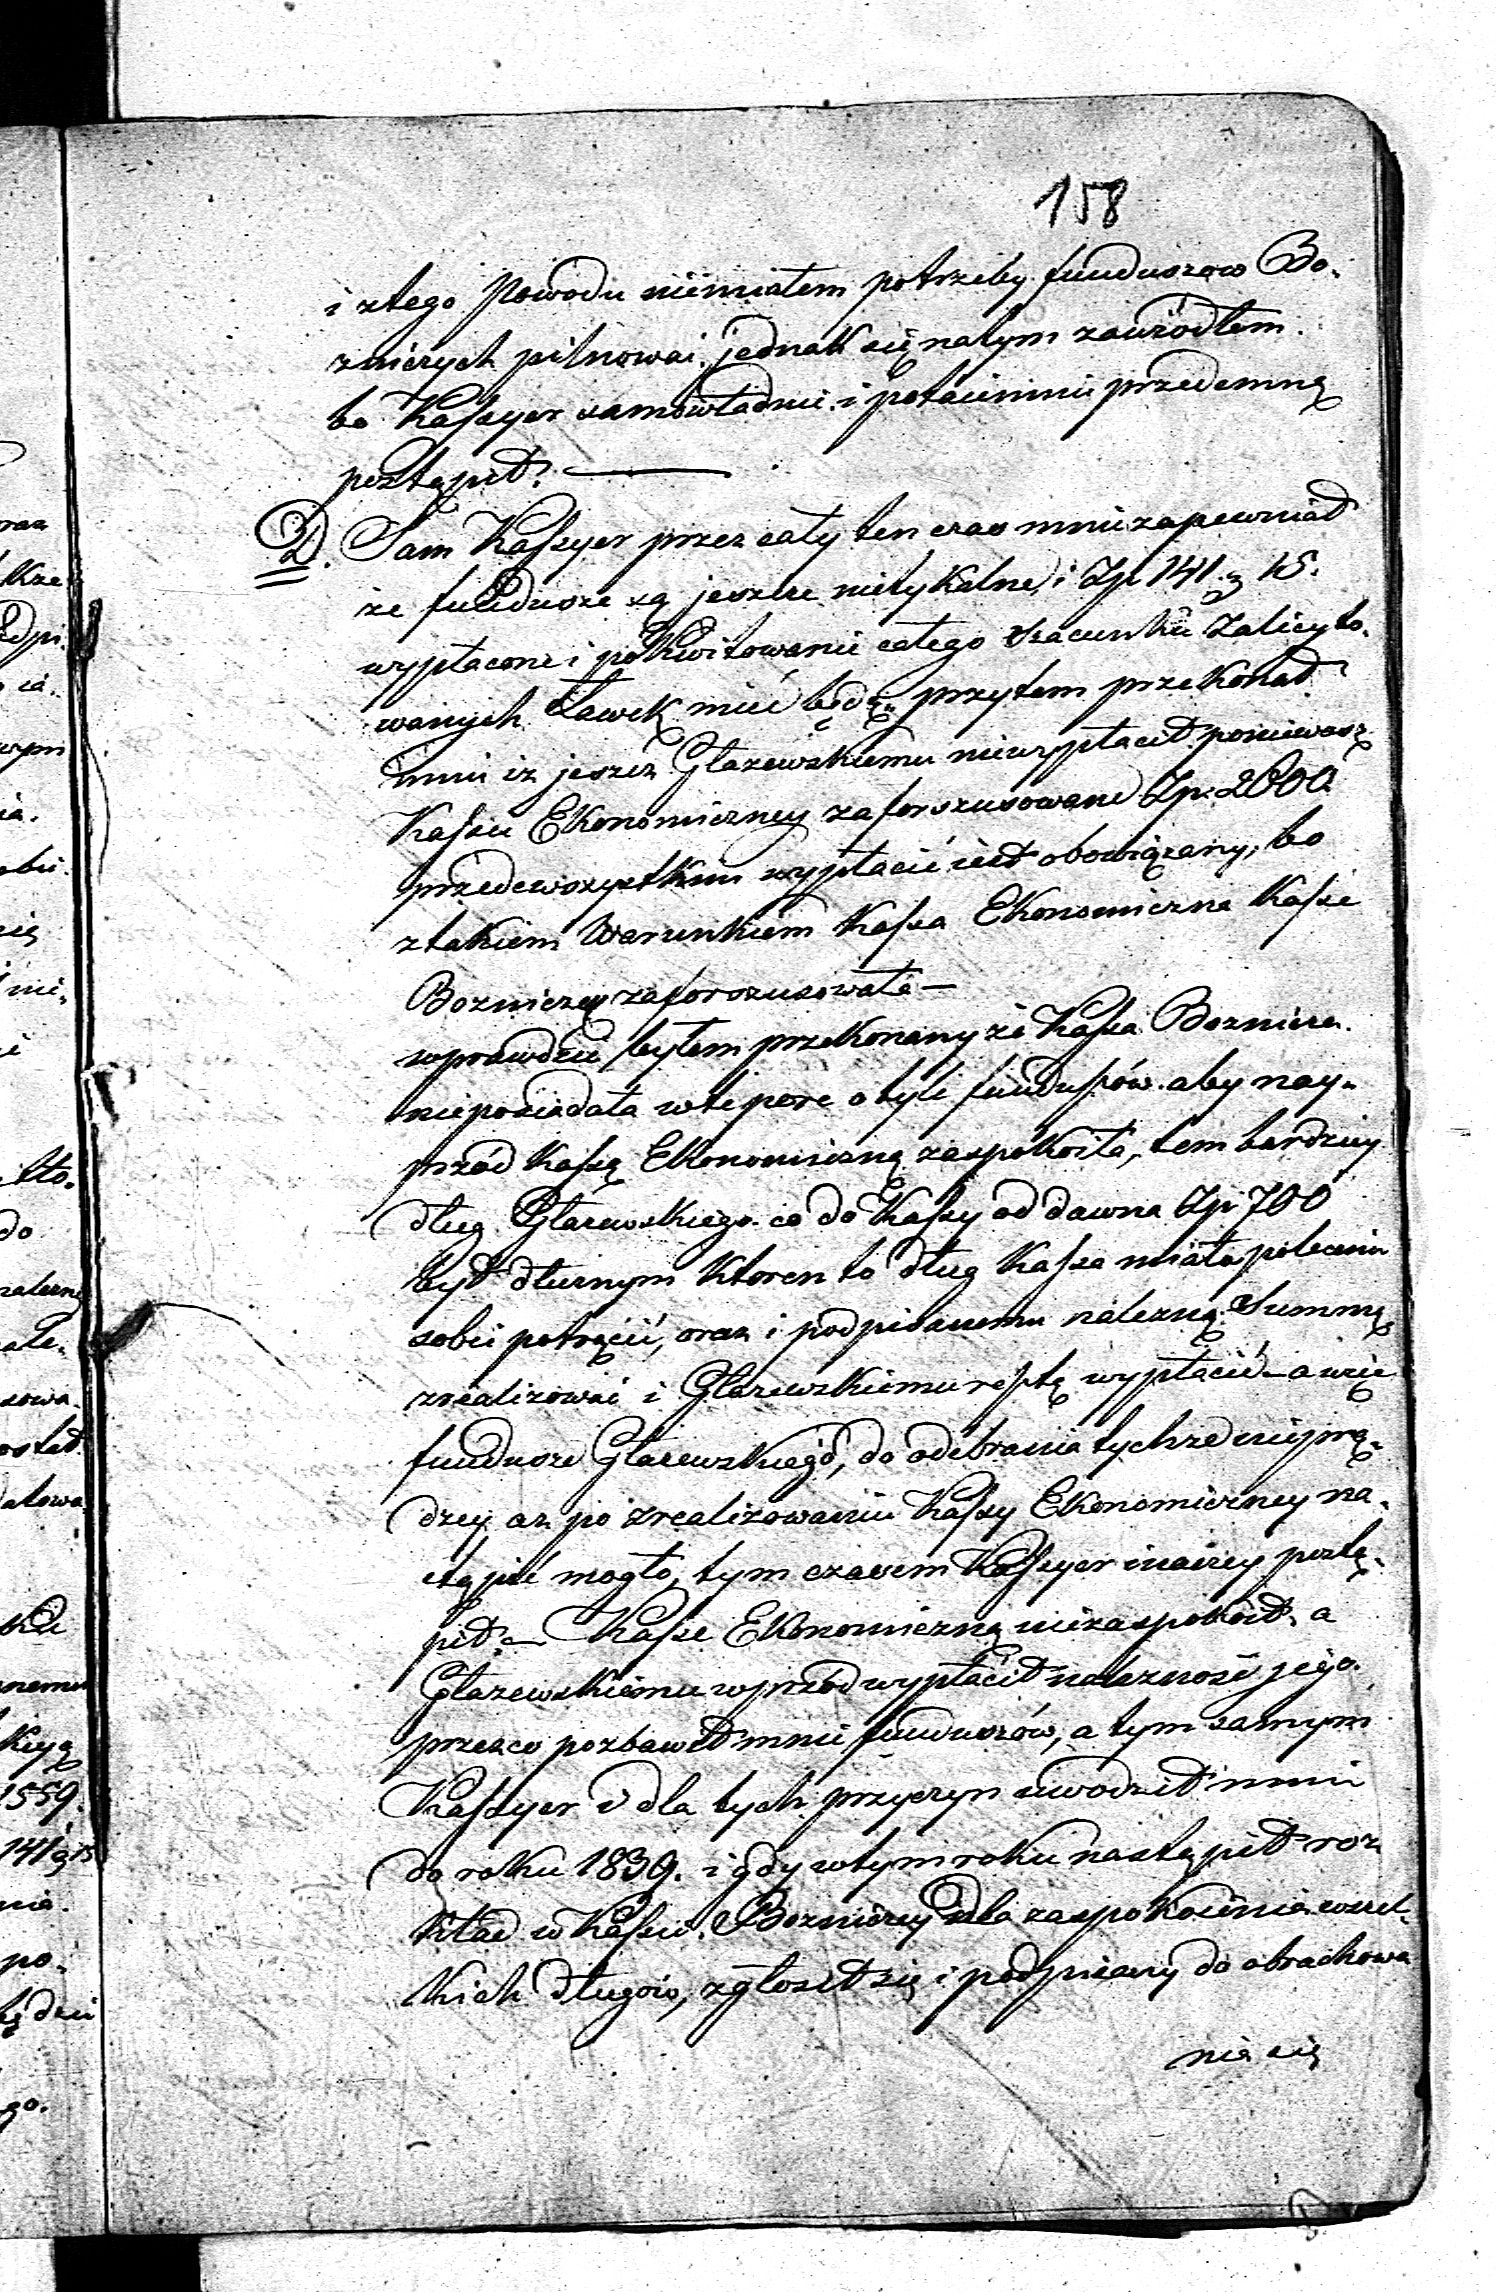 158
i ztego Powodu niemiałem potrzeby funduszow Bo-
zniczych pilnować, jednak się natym zawiódłem.
bo Kassyer samowładnie i potaiemnie przedemną
postąpił. —
D. Sam Kassyer przez cały ten czas mnie zapewniał
że fundusze są jeszcze nietykalne, i Zp 141 g 15.
wypłacone i pokwitowanie całego szacunku zalicyto-
wanych Ławek mieć będę, przytem przekonał
mnie iz jeszcze Głazewskiemu niewypłacił ponieważ
Kassie Ekonomiczney zaforszusowane Zp. 2000
przedewszystkiem wypłacić iest obowiązany, bo
ztakiem Warunkiem Kassa Ekonomiczna Kassie
Bozniczey zaforszusowała —
wprawdzie byłem przekonany że Kassa Boznicza
nieposiadała wte pore otyle fundussów aby nay-
przód Kassą Ekonomiczną zaspokoiła, tem bardziey
dług Głazewskiego co do Kassy od dawna Zp 700
był dłużnym Ktoren to dług Kassa miała polecenie
sobie potrącić, oraz i podpisanemu należną Summę
zrealizować i Głazewskiemu resztę wypłacić — a więc
fundusze Głazewskiego, do odebrania tychże nieprę-
dzey az po zrealizowaniu Kassy Ekonomiczney na-
stąpić mogło, tym czasem Kassyer inaczey postą-
pił. — Kasse Ekonomiczną niezaspokoił, a
Głazewskiemu wprzód wypłacił należność jego
przezco pozbawił mnie funduszów, a tym samym
Kassyer i dla tych przyczyn uwodził mnie
do roku 1839. i gdy wtym roku nastąpił roz
kład w Kassie Bozniczey dla zaspokoienia wszel-
kich długów, zgłosił się i podpisany do obrachowa
nia się